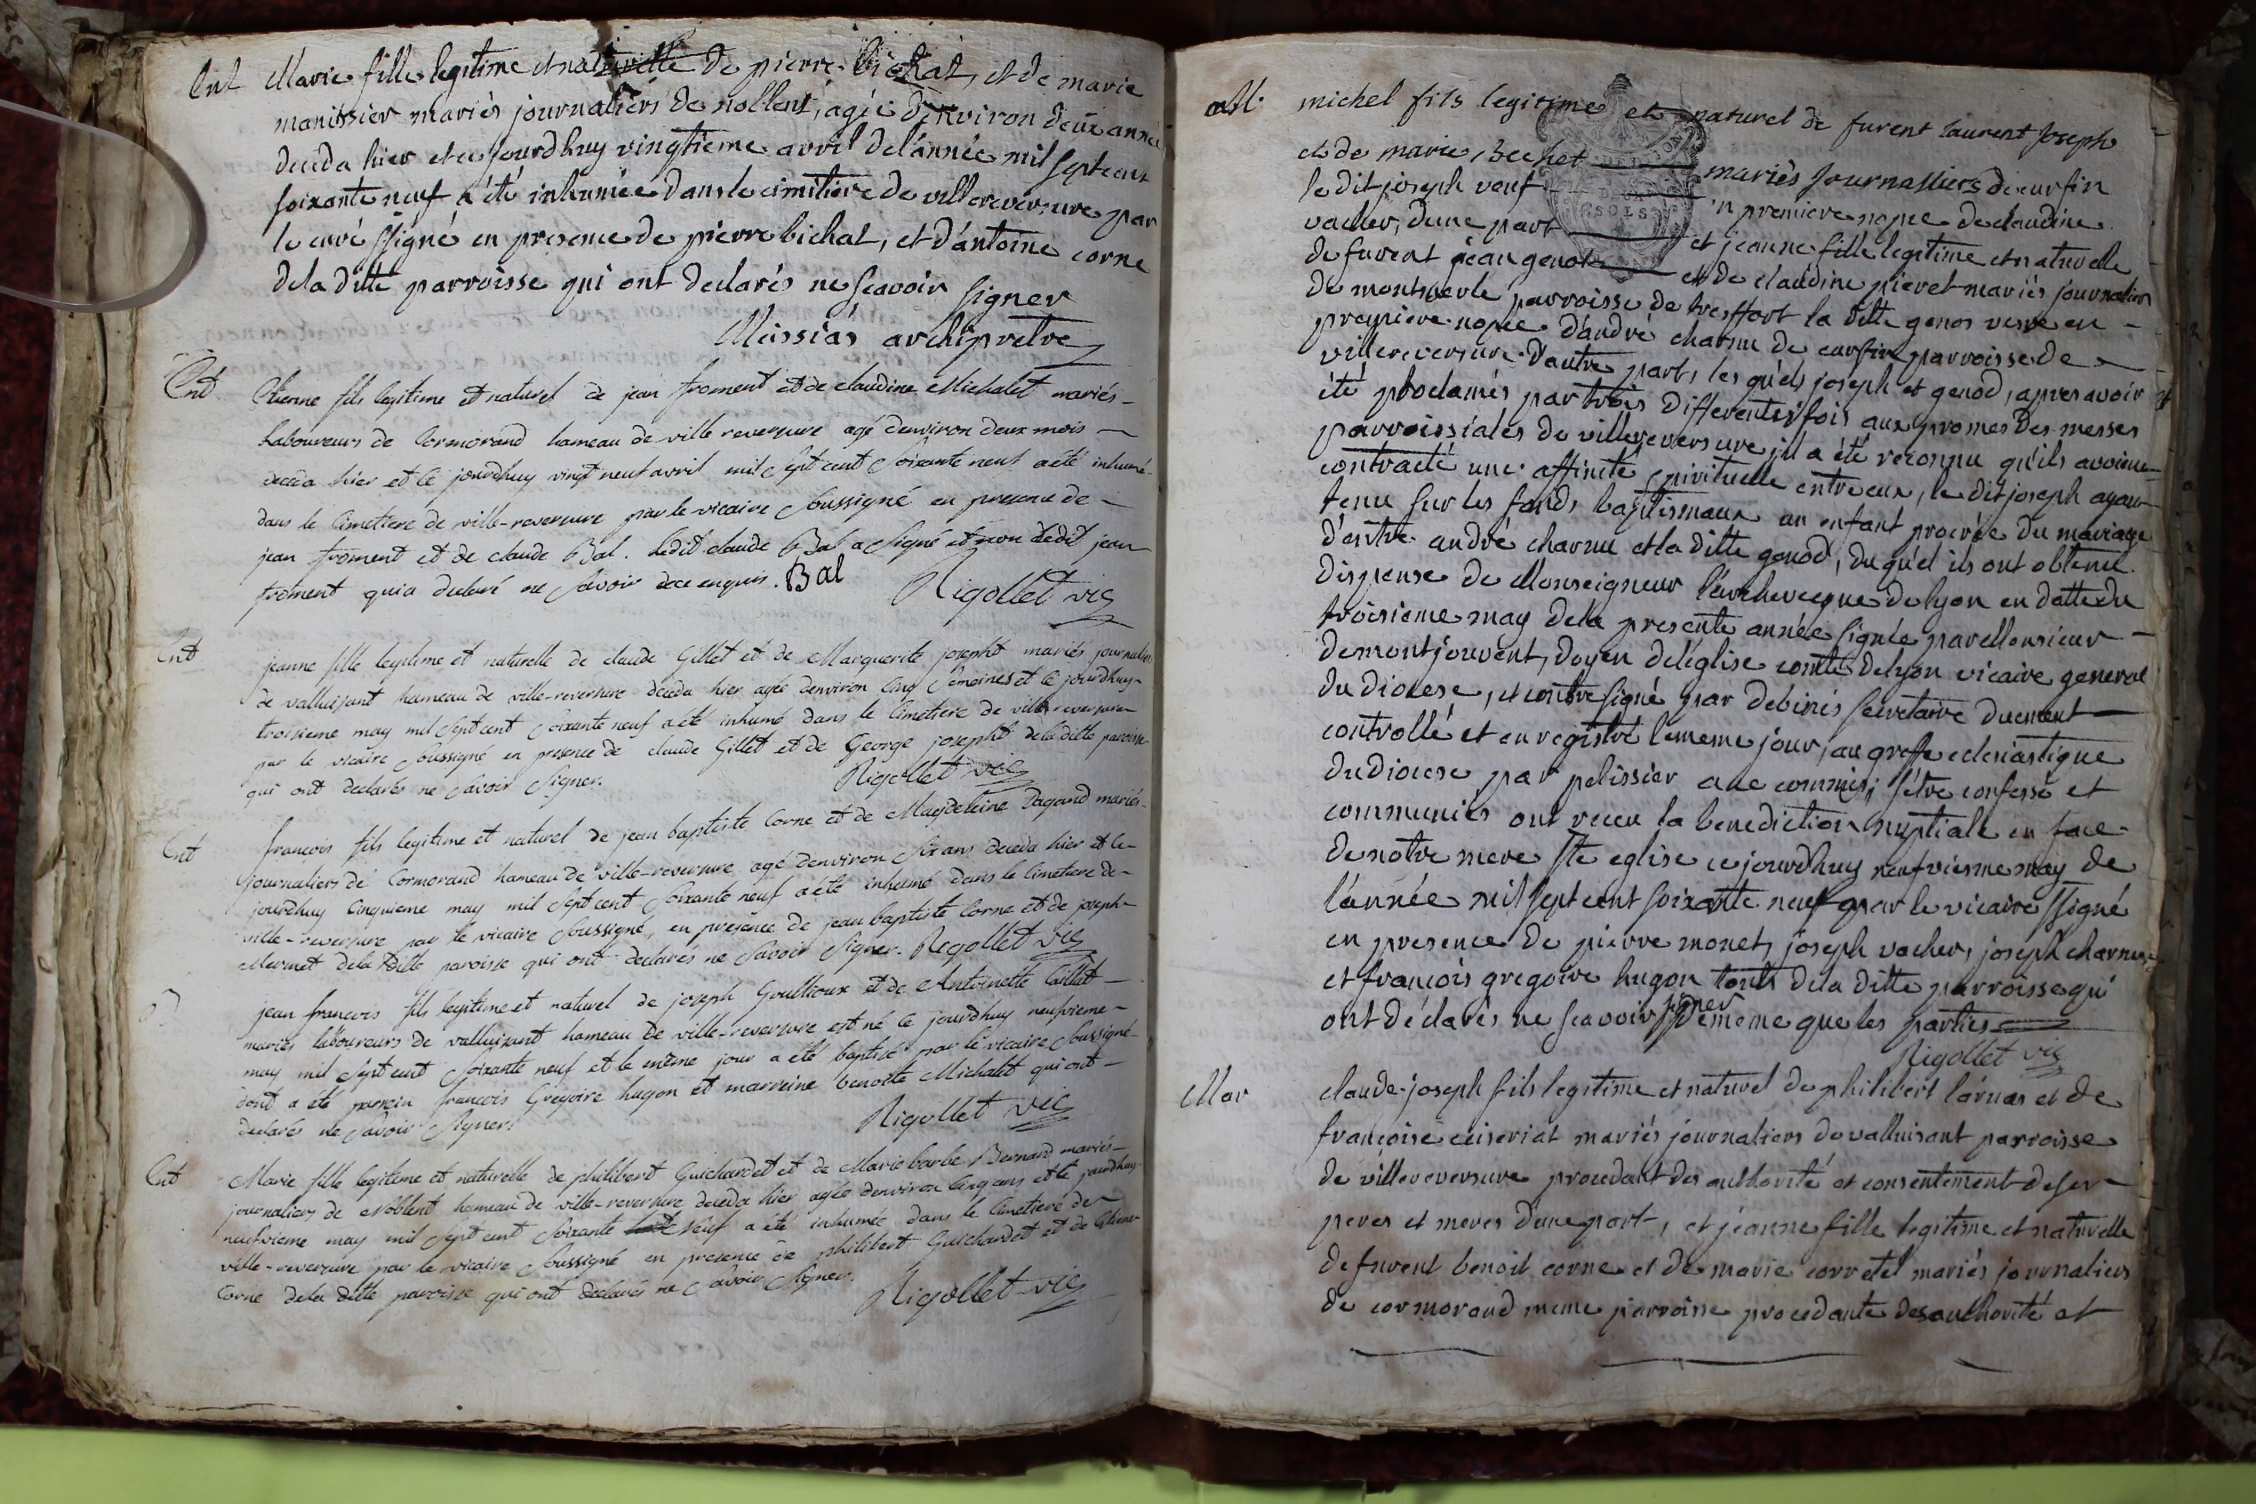 Ent Marie fille legitime et naturelle de pierre bichat, et de marie
manissier mariés journaliers de noblent, agée d'environ deux année
deceda hier et ce jourdhuy vingtieme avril de l'année mil sept cent
soixante neuf a été inhumée dans le cimitière de villereversure par
le curé ssigné en presence de pierre bichat, et d'antoine corne
de la ditte parroisse qui ont declarés ne scavoir signer
Messias archipretre
Ent Etienne fils legitime et naturel de jean froment et de claudine Michalet mariés
Laboureurs de Cormorand hameau de ville reversure agé denviron deux mois
deceda hier et le jourdhuy vingt neuf avril mil sept cent soixante neuf a été inhumé
dans le Cimetiere de ville-reversure par le vicaire soussigné en presence de
jean froment et de claude Bal. Ledit claude Bal a signé et non ledit jean
froment qui a declaré ne savoir de ce enquis. Bal Rigollet vic
Ent jeanne fille legitime et naturelle de claude Gillet et de Marguerite josepht mariés journaliers
de valluisant hameau de ville-reversure deceda hier agée denviron cinq semaines et le jourdhuy
troisieme may mil sept cent soixante neuf a été inhumé dans le Cimetiere de ville-reversure
par le vicaire soussigné en presence de claude Gillet et de George josepht de la ditte paroisse
qui ont declarés ne savoir signer. Rigollet vic
Ent francois fils legitime et naturel de jean baptiste Corne et de Magdeleine Dagand mariés
journaliers de Cormorand hameau de ville-reversure agé denviron six ans deceda hier et le
jourdhuy cinquieme may mil sept cent soixante neuf a été inhumé dans le Cimetiere de
ville-reversure par le vicaire soussigné, en presence de jean baptiste Corne et de joseph
Mermet de la ditte paroisse qui ont declarés ne savoir signer. Rigollet vic
jean francois fils legitime et naturel de joseph Goultioux et de Antoinette Caillat
mariés laboureurs de valluisant hameau de ville-reversure est né le jourdhuy neufvieme
may mil sept cent soixante neuf et le même jour a été baptisé par le vicaire soussigné
dont a été parrein francois Gregoire hugon et marreine benoite Michalet qui ont
declarés ne savoir signer. Rigollet vic
Ent Marie fille legitime et naturelle de philibert Guichardet et de Marie barbe Bernard mariés
journaliers de Noblent hameau de ville-reversure deceda hier agée denviron cinq ans et le jourdhuy
neufvieme may mil sept cent soixante neuf a été inhumée dans le Cimetiere de
ville-reversure par le vicaire soussigné en presence de philibert Guichardet et de Etienne
Corne de la ditte paroisse qui ont declarés ne savoir signer. Rigollet vic
M. michel fils legitime et naturel de furent laurent Joseph
et de marie, bechet mariés journalliers de curfin
le dit joseph veuf 'n premiere nopce de claudine
vacher, dune part et jeanne fille legitime et naturelle
de furent jean genod et de claudine pievet mariés journaliers
de montverle parroisse de tresffort la ditte genos veuve en
premiere nopce d'andré charnu de curfin parroisse de
villereversure d'autre part, les quéls joseph et genod, apres avoir
été proclamés par trois differentes fois aux promes des messes
parroissiales de villereversure, il a été reconnu qu'ils avoient
contracté une affinité spirituelle entre eux, le dit joseph ayant
tenu sur les fonds baptismaux un enfant procrée du mariage
d'entre andré charnu et la ditte genod, du qu'el ils ont obtenu
dispense de Monseigneur l'archeveque de lyon en datte du
troisieme may de la presente année signée par Monsieur
de montjouvent, doyen de l'église comte de lyon vicaire general
du diocese, et contresigné par debinés secretaire duement
controllé et enregistré le meme jour, au greffe eclesiastique
du diocese par pelissier commis; s'étre confessé et
communiés ont receu la benediction nuptiale en face
de notre mere Ste eglise ce jourdhuy neufvieme may de
l'année mil sept cent soixante neuf par le vicaire ssigné
en presence de pierre monet, joseph vacher, joseph charnu
et francois gregoire hugon touts de la ditte parroisse qui
ont déclarés ne scavoir signer de meme que les parties
Rigollet vic
Mar claude-joseph fils legitime et naturel de philibert larnas et de
francoise ceiseriat mariés journaliers de valluisant parroisse
de villereversure procedant des authorité et consentement de ser
peres et meres d'une part, et jéanne fille legitime et naturelle
de furent benoit corne et de marie corretel mariés journaliers
de cormorand meme parroisse procedante des authorité et